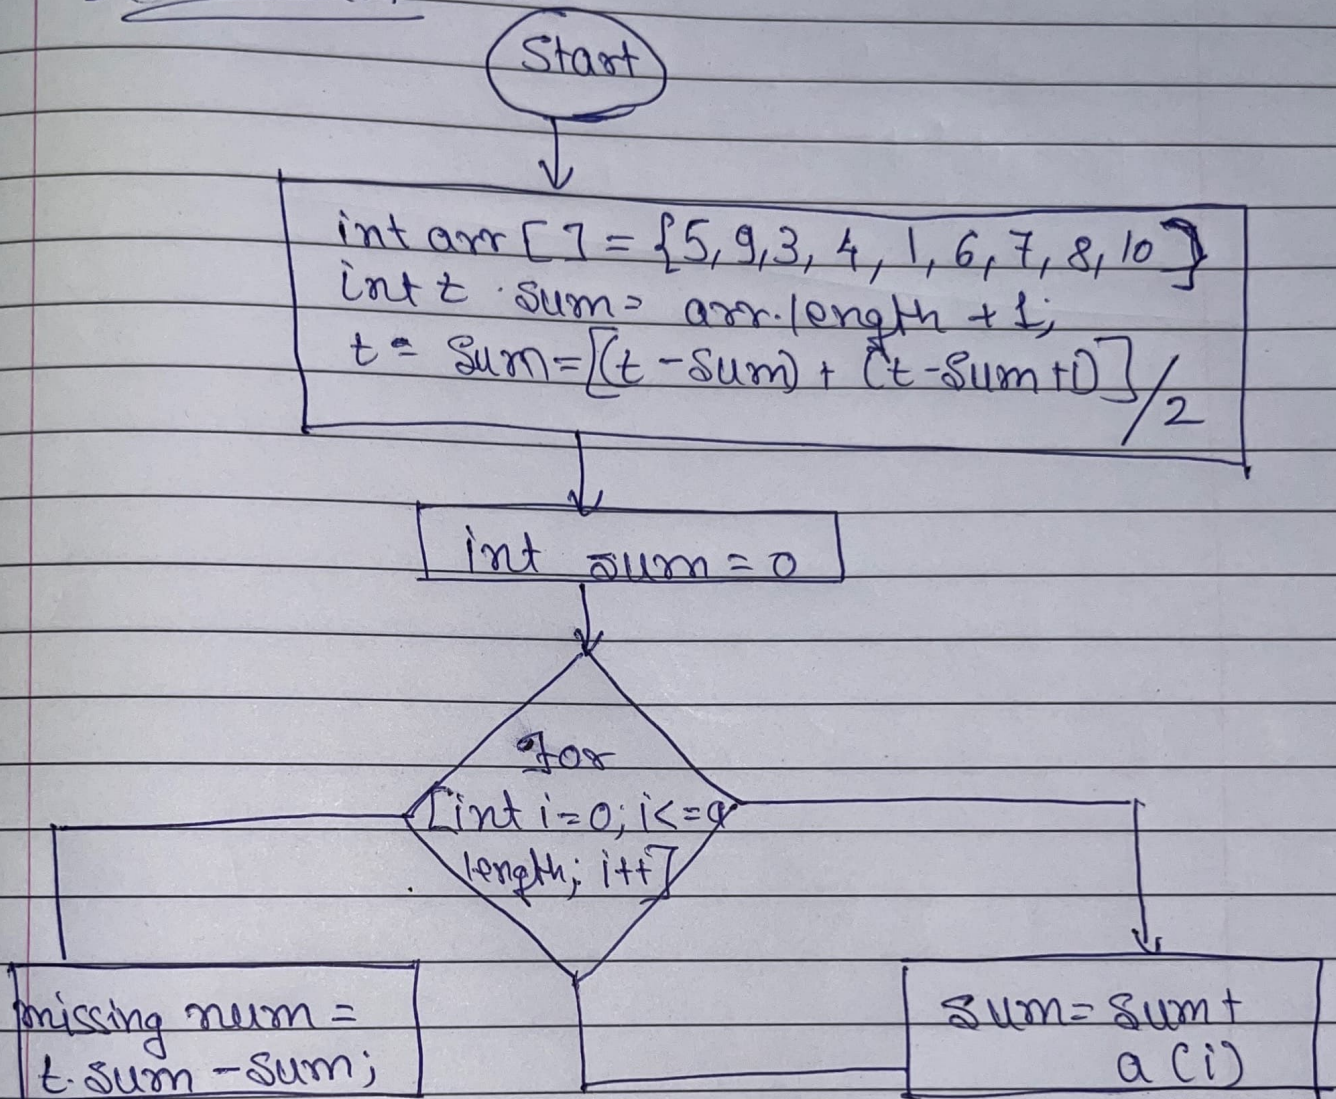 Start
int arr [ ] = {5, 9, 3, 4, 1, 6, 7, 8, 10}
int t sum = arr.length + 1;
t = Sum = [(t - Sum) + (t - Sum + 1)] / 2
int sum = 0
For
[int i = 0; i <= a
length; i++]
missing num =
t. sum - sum;
sum = sum +
a (i)